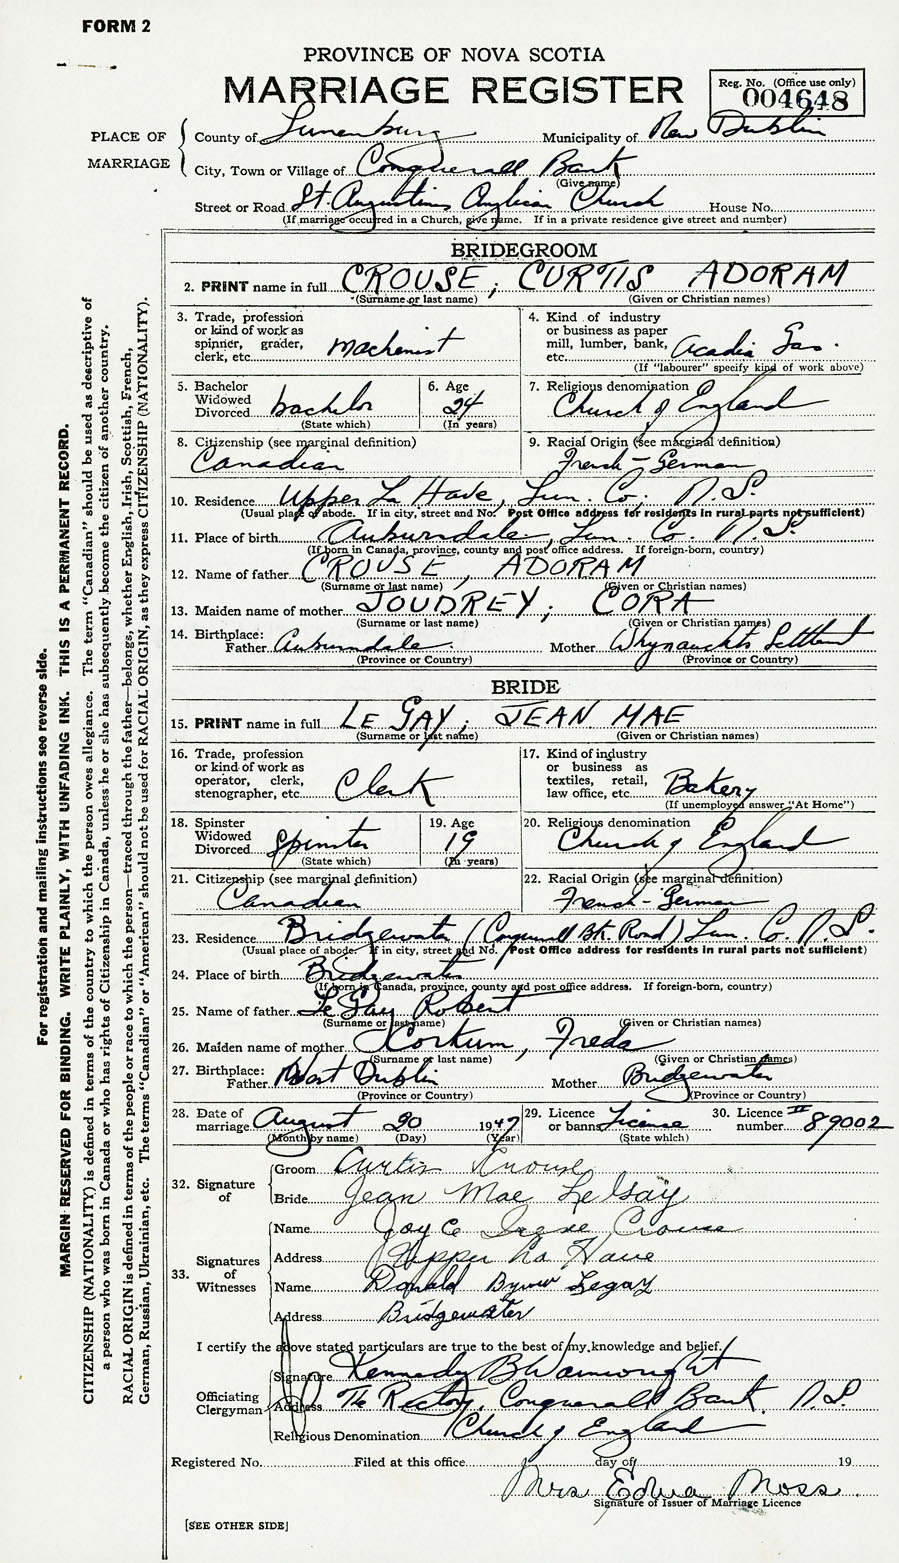 FORM 2
PROVINCE OF NOVA SCOTIA
MARRIAGE REGISTER
Reg. No. (Office use only)
004648
PLACE OF MARRIAGE
County of Lunenburg Municipality of New Dublin
City, Town or Village of Conquerall Bank
(Give name)
Street or Road St. Augustines Anglican Church House No.
(If marriage occurred in a Church, give name. If in a private residence give street and number)
BRIDEGROOM
2. PRINT name in full CROUSE, CURTIS ADORAM
(Surname or last name) (Given or Christian names)
3. Trade, profession or kind of work as spinner, grader, clerk, etc. Machinist
4. Kind of industry or business as paper mill, lumber, bank, etc. Acadia Gas.
(If "labourer" specify kind of work above)
5. Bachelor Widowed Divorced bachelor
(State which)
6. Age 24
(In years)
7. Religious denomination Church of England
8. Citizenship (see marginal definition) Canadian
9. Racial Origin (see marginal definition) French-German
10. Residence Upper La Have, Lun. Co., N.S.
(Usual place of abode. If in city, street and No. Post Office address for residents in rural parts not sufficient)
11. Place of birth Auburndale, Lun. Co. N.S.
(If born in Canada, province, county and post office address. If foreign-born, country)
12. Name of father CROUSE, ADORAM
(Surname or last name) (Given or Christian names)
13. Maiden name of mother JOUDREY, CORA
(Surname or last name) (Given or Christian names)
14. Birthplace: Father Auburndale Mother Whynauchts Settlement
(Province or Country) (Province or Country)
BRIDE
15. PRINT name in full LE GAY, JEAN MAE
(Surname or last name) (Given or Christian names)
16. Trade, profession or kind of work as operator, clerk, stenographer, etc. Clerk
17. Kind of industry or business as textiles, retail, law office, etc. Bakery
(If unemployed answer "At Home")
18. Spinster Widowed Divorced Spinster
(State which)
19. Age 19
(In years)
20. Religious denomination Church of England
21. Citizenship (see marginal definition) Canadian
22. Racial Origin (see marginal definition) French-German
23. Residence Bridgewater (Conquerall Bk. Road) Lun. Co. N.S.
(Usual place of abode. If in city, street and No. Post Office address for residents in rural parts not sufficient)
24. Place of birth Bridgewater
(If born in Canada, province, county and post office address. If foreign-born, country)
25. Name of father Le Gay Robert
(Surname or last name) (Given or Christian names)
26. Maiden name of mother Corkum, Freda
(Surname or last name) (Given or Christian names)
27. Birthplace: Father West Dublin Mother Bridgewater
(Province or Country) (Province or Country)
28. Date of marriage August 20 1947
(Month by name) (Day) (Year)
29. Licence or banns License
(State which)
30. Licence number II 89002
32. Signature of
Groom Curtis Crouse
Bride Jean Mae LeGay
33. Signatures of Witnesses
Name Joyce Irene Crouse
Address Upper La Have
Name Donald Legay
Address Bridgewater
I certify the above stated particulars are true to the best of my knowledge and belief.
Officiating Clergyman
Signature Kennedy B Wainwright
Address The Rectory, Conquerall Bank, N.S.
Religious Denomination Church of England
Registered No. Filed at this office day of 19
Mrs Edna Moss
Signature of Issuer of Marriage Licence
[SEE OTHER SIDE]
For registration and mailing instructions see reverse side.
MARGIN RESERVED FOR BINDING. WRITE PLAINLY, WITH UNFADING INK. THIS IS A PERMANENT RECORD.
CITIZENSHIP (NATIONALITY) is defined in terms of the country to which the person owes allegiance. The term "Canadian" should be used as descriptive of
a person who was born in Canada or who has rights of Citizenship in Canada, unless he or she has subsequently become the citizen of another country.
RACIAL ORIGIN is defined in terms of the people or race to which the person—traced through the father—belongs, whether English, Irish, Scottish, French,
German, Russian, Ukrainian, etc. The terms "Canadian" or "American" should not be used for RACIAL ORIGIN, as they express CITIZENSHIP (NATIONALITY).